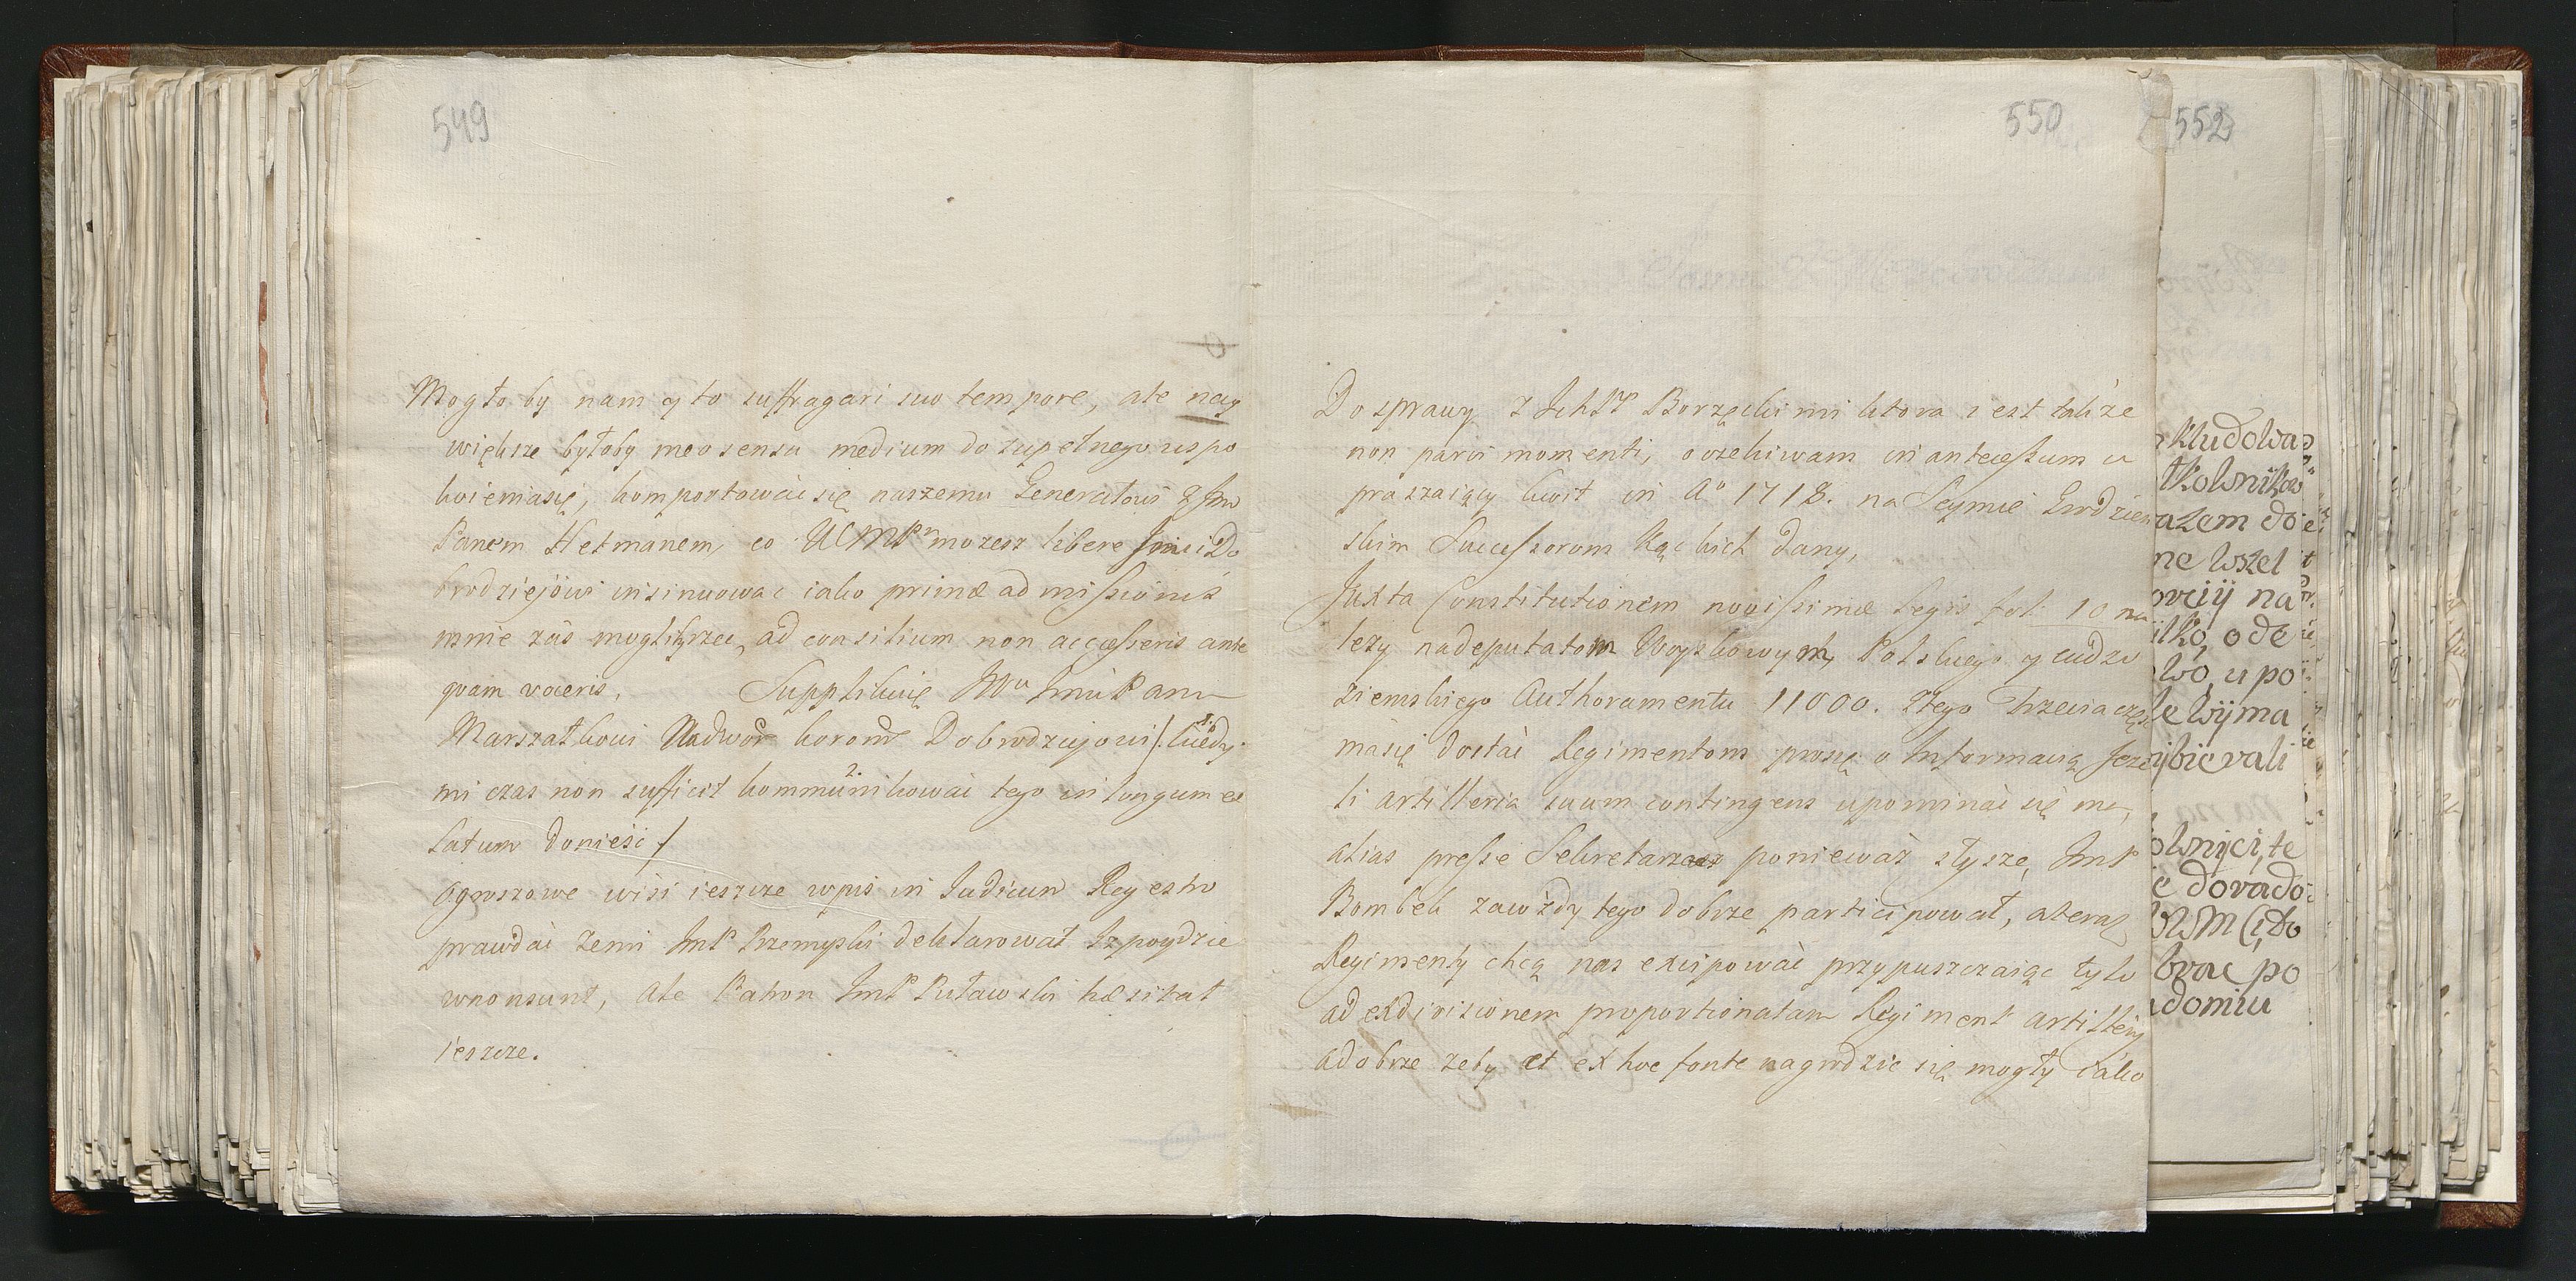 549
Mogło by nam y to suffragari suo tempore, ale nay
większe byłoby meo sensu medium do zupełnego uspo
koieniasię, komportowác się naszemu Generałowi z Jmć
Panem Hetmanem, co WMPn mozesz libere Jmci Do
brodziejowi insinuowac iako primæ admissionis
mnie zás mogliby rzec, ad consilium non accesseris ante
quam voceris. Supplikuię Jmci Panu
Marszałkowi Nadwor koron Dobrodziejowi /: kiedy
mi czas non sufficit kommunikowác tego in longum et
latum donieść /
ogroszowe wisi ieszcze wpis in Judicum Regestro
prawdái zemi JmP Przemyski deklarował Iz poydzie
wnonsunt, ale Patron JmP Puławski hæsitat
ieszcze.
550
Do sprawy z Ichmć Borzęckimi ktora iest takze
non parvi momenti, oczekiwam in antecessum u
praszaiący kwit in Ao 1718. na Seymie Grodzien
skim Successorom Kąckich dany,
Juxta Constitutionem novissimæ Legis fol: 10 na
lezy nadeputatom Woyskowym, Polskiego y cudzo
ziemskiego Authoramentu 11000. Ztego trzecia częś
másię dostác Regimentom proszę o Informacyą Jeże
li artilleria suum contingens upominác się ma,
alias presse Sekretarza poniewáz słyszę, JmP
Bombek zawżdy tego dobrze participował, ateraz
Regimenty chcą nas excipowác przypuszczaiąc tylo
ad exdivisionem proportionatam Regiment artillery
adobrze zeby et ex hoc fonte nagrodzic się mogły iako
552
kludowa
tkownikow
razem do
ne wszel
orciÿ na
ilko, ode
wo, u po
le wÿma
ÿbic vali
olwnÿci, te
e dorado
WM (ito
brac po
adomiu